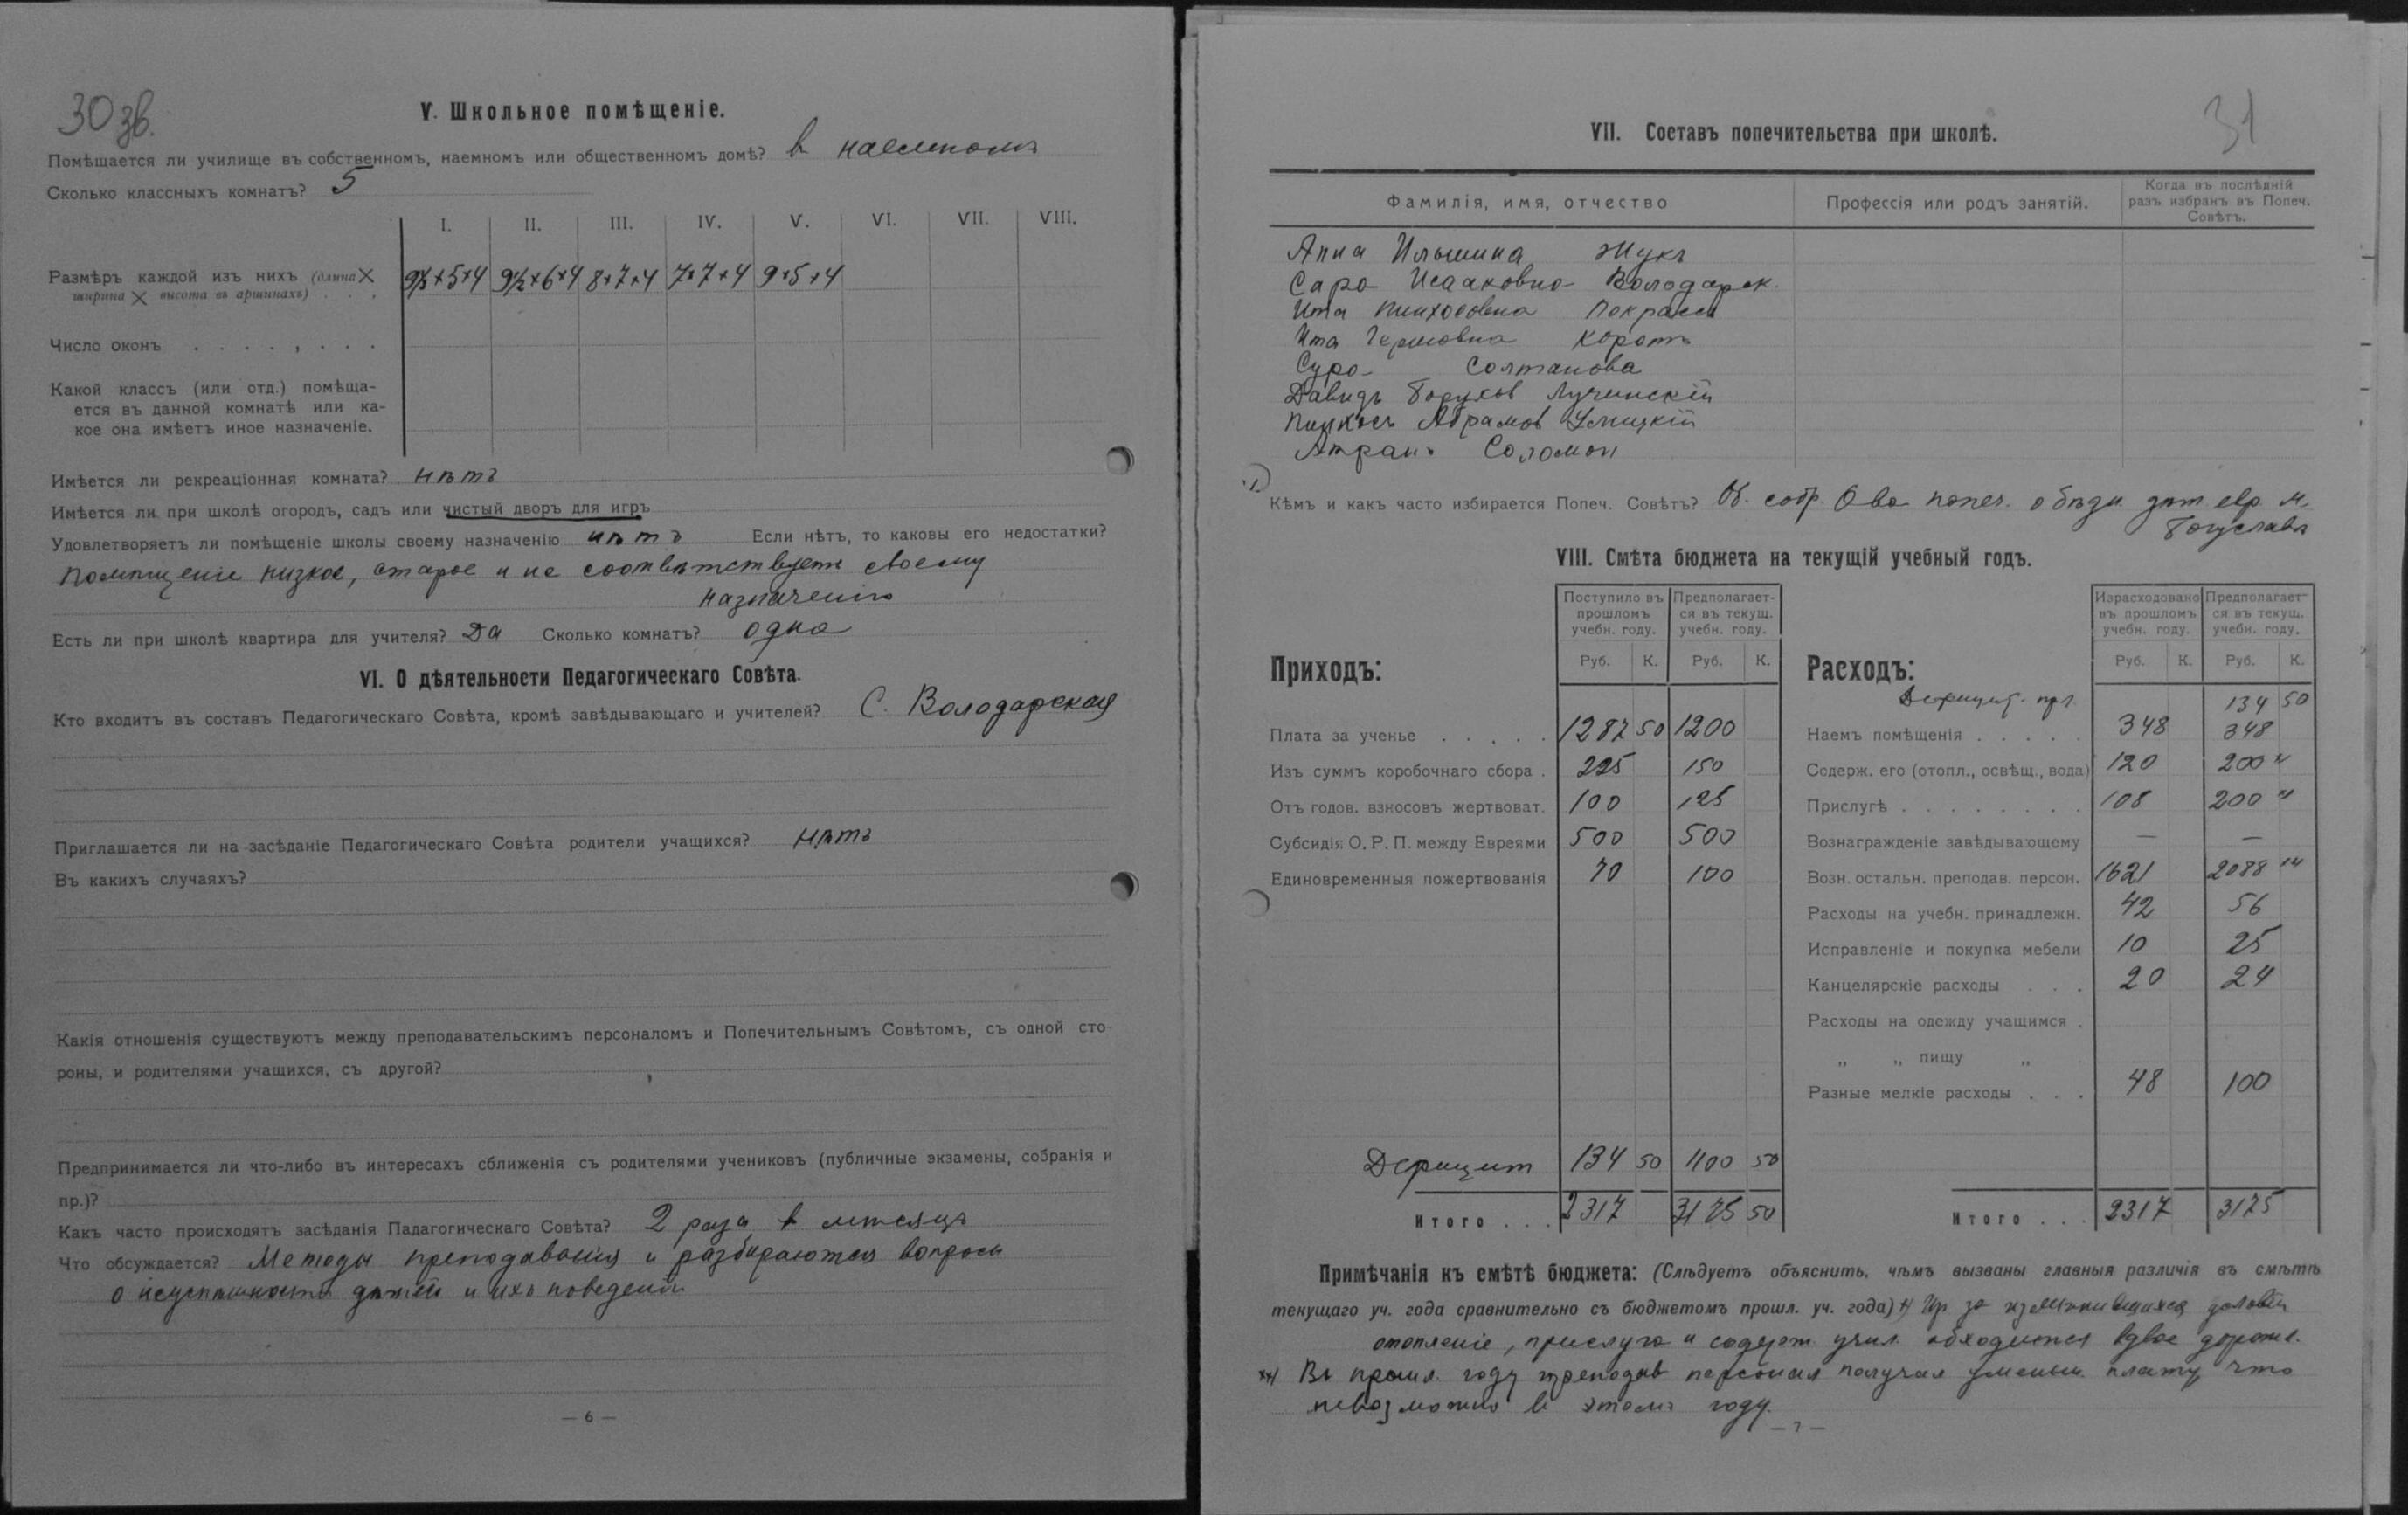 30 зв.
V. Школьное помѣщеніе.
Помѣщается ли училище въ собственномъ, наемномъ или общественномъ домѣ? в наемномъ
Сколько классныхъ комнатъ? 5
I. II. III. IV. V. VI. VII. VIII.
Размѣръ каждой изъ нихъ (длина × ширина × высота въ аршинахъ) . . . 9½+5+4 9½+6+4 8+7+4 7+7+4 9+5+4
Число оконъ . . . . , . . .
Какой классъ (или отд.) помѣща-
ется въ данной комнатѣ или ка-
кое она имѣетъ иное назначеніе.
Имѣется ли рекреаціонная комната? нѣтъ
Имѣется ли при школѣ огородъ, садъ или чистый дворъ для игръ
Удовлетворяетъ ли помѣщеніе школы своему назначенію нѣтъ Если нѣтъ, то каковы его недостатки?
Помѣщеніе низкое, старое и не соотвѣтствуетъ своему
назначенію
Есть ли при школѣ квартира для учителя? Да Сколько комнатъ? одна
VI. О дѣятельности Педагогическаго Совѣта.
Кто входитъ въ составъ Педагогическаго Совѣта, кромѣ завѣдывающаго и учителей? С. Володарская
Приглашается ли на засѣданіе Педагогическаго Совѣта родители учащихся? нѣтъ
Въ какихъ случаяхъ?
Какія отношенія существуютъ между преподавательскимъ персоналомъ и Попечительнымъ Совѣтомъ, съ одной сто-
роны, и родителями учащихся, съ другой?
Предпринимается ли что-либо въ интересахъ сближенія съ родителями учениковъ (публичные экзамены, собранія и
пр.)?
Какъ часто происходятъ засѣданія Падагогическаго Совѣта? 2 раза в мѣсяцъ
Что обсуждается? Методы преподаванія и разбираются вопросы
о неуспѣшности дѣтей и ихъ поведеніи
— 6 —
31
VII. Составъ попечительства при школѣ.
Фамилія, имя, отчество Профессія или родъ занятій. Когда въ послѣдній разъ избранъ въ Попеч. Совѣтъ.
Анна Ильинина Жукъ
Сара Исааковна Володарск.
Ита Пинхосовна Покрасъ
Ита Корот
Сура Солтанова
Давидъ Борухов Лучинскій
Пинхосъ Абрамов
Атранъ Соломон
Кѣмъ и какъ часто избирается Попеч. Совѣтъ? Об. собр. О-ва попеч. о бѣдн. дѣт. евр. м.
Богуслава
VIII. Смѣта бюджета на текущій учебный годъ.
Поступило въ прошломъ учебн. году. Предполагает-ся въ текущ. учебн. году. Израсходовано въ прошломъ учебн. году. Предполагает-ся въ текущ. учебн. году.
Приходъ: Руб. К. Руб. К. Расходъ: Руб. К. Руб. К.
Дефицит. пр. 134 50
Плата за ученье . . . . . 1287 50 1200 Наемъ помѣщенія . . . . . 348 348
Изъ суммъ коробочнаго сбора . 225 150 Содерж. его (отопл., освѣщ., вода) 120 200 "
Отъ годов. взносовъ жертвоват. 100 125 Прислугѣ . . . . . . . . 108 200 "
Субсидія О. Р. П. между Евреями 500 500 Вознагражденіе завѣдывающему — —
Единовременныя пожертвованія 70 100 Возн. остальн. преподав. персон. 1621 2088 "
Расходы на учебн. принадлежн. 42 56
Исправленіе и покупка мебели 10 25
Канцелярскіе расходы . . . 20 24
Расходы на одежду учащимся .
„ „ пищу „
Разные мелкіе расходы . . . 48 100
Дефицит 134 50 1100 50
Итого . . . 2317 3175 50 Итого . . . 2317 3175
Примѣчанія къ смѣтѣ бюджета: (Слѣдуетъ объяснить, чѣмъ вызваны главныя различія въ смѣтѣ
текущаго уч. года сравнительно съ бюджетомъ прошл. уч. года) Из за измѣнившихся условій
отопленіе, прислуга и содерж. учил. обходится вдвое дороже.
Въ прошл. году преподав персонал получал уменьш. плату, что
невозможно в этомъ году.
— 7 —